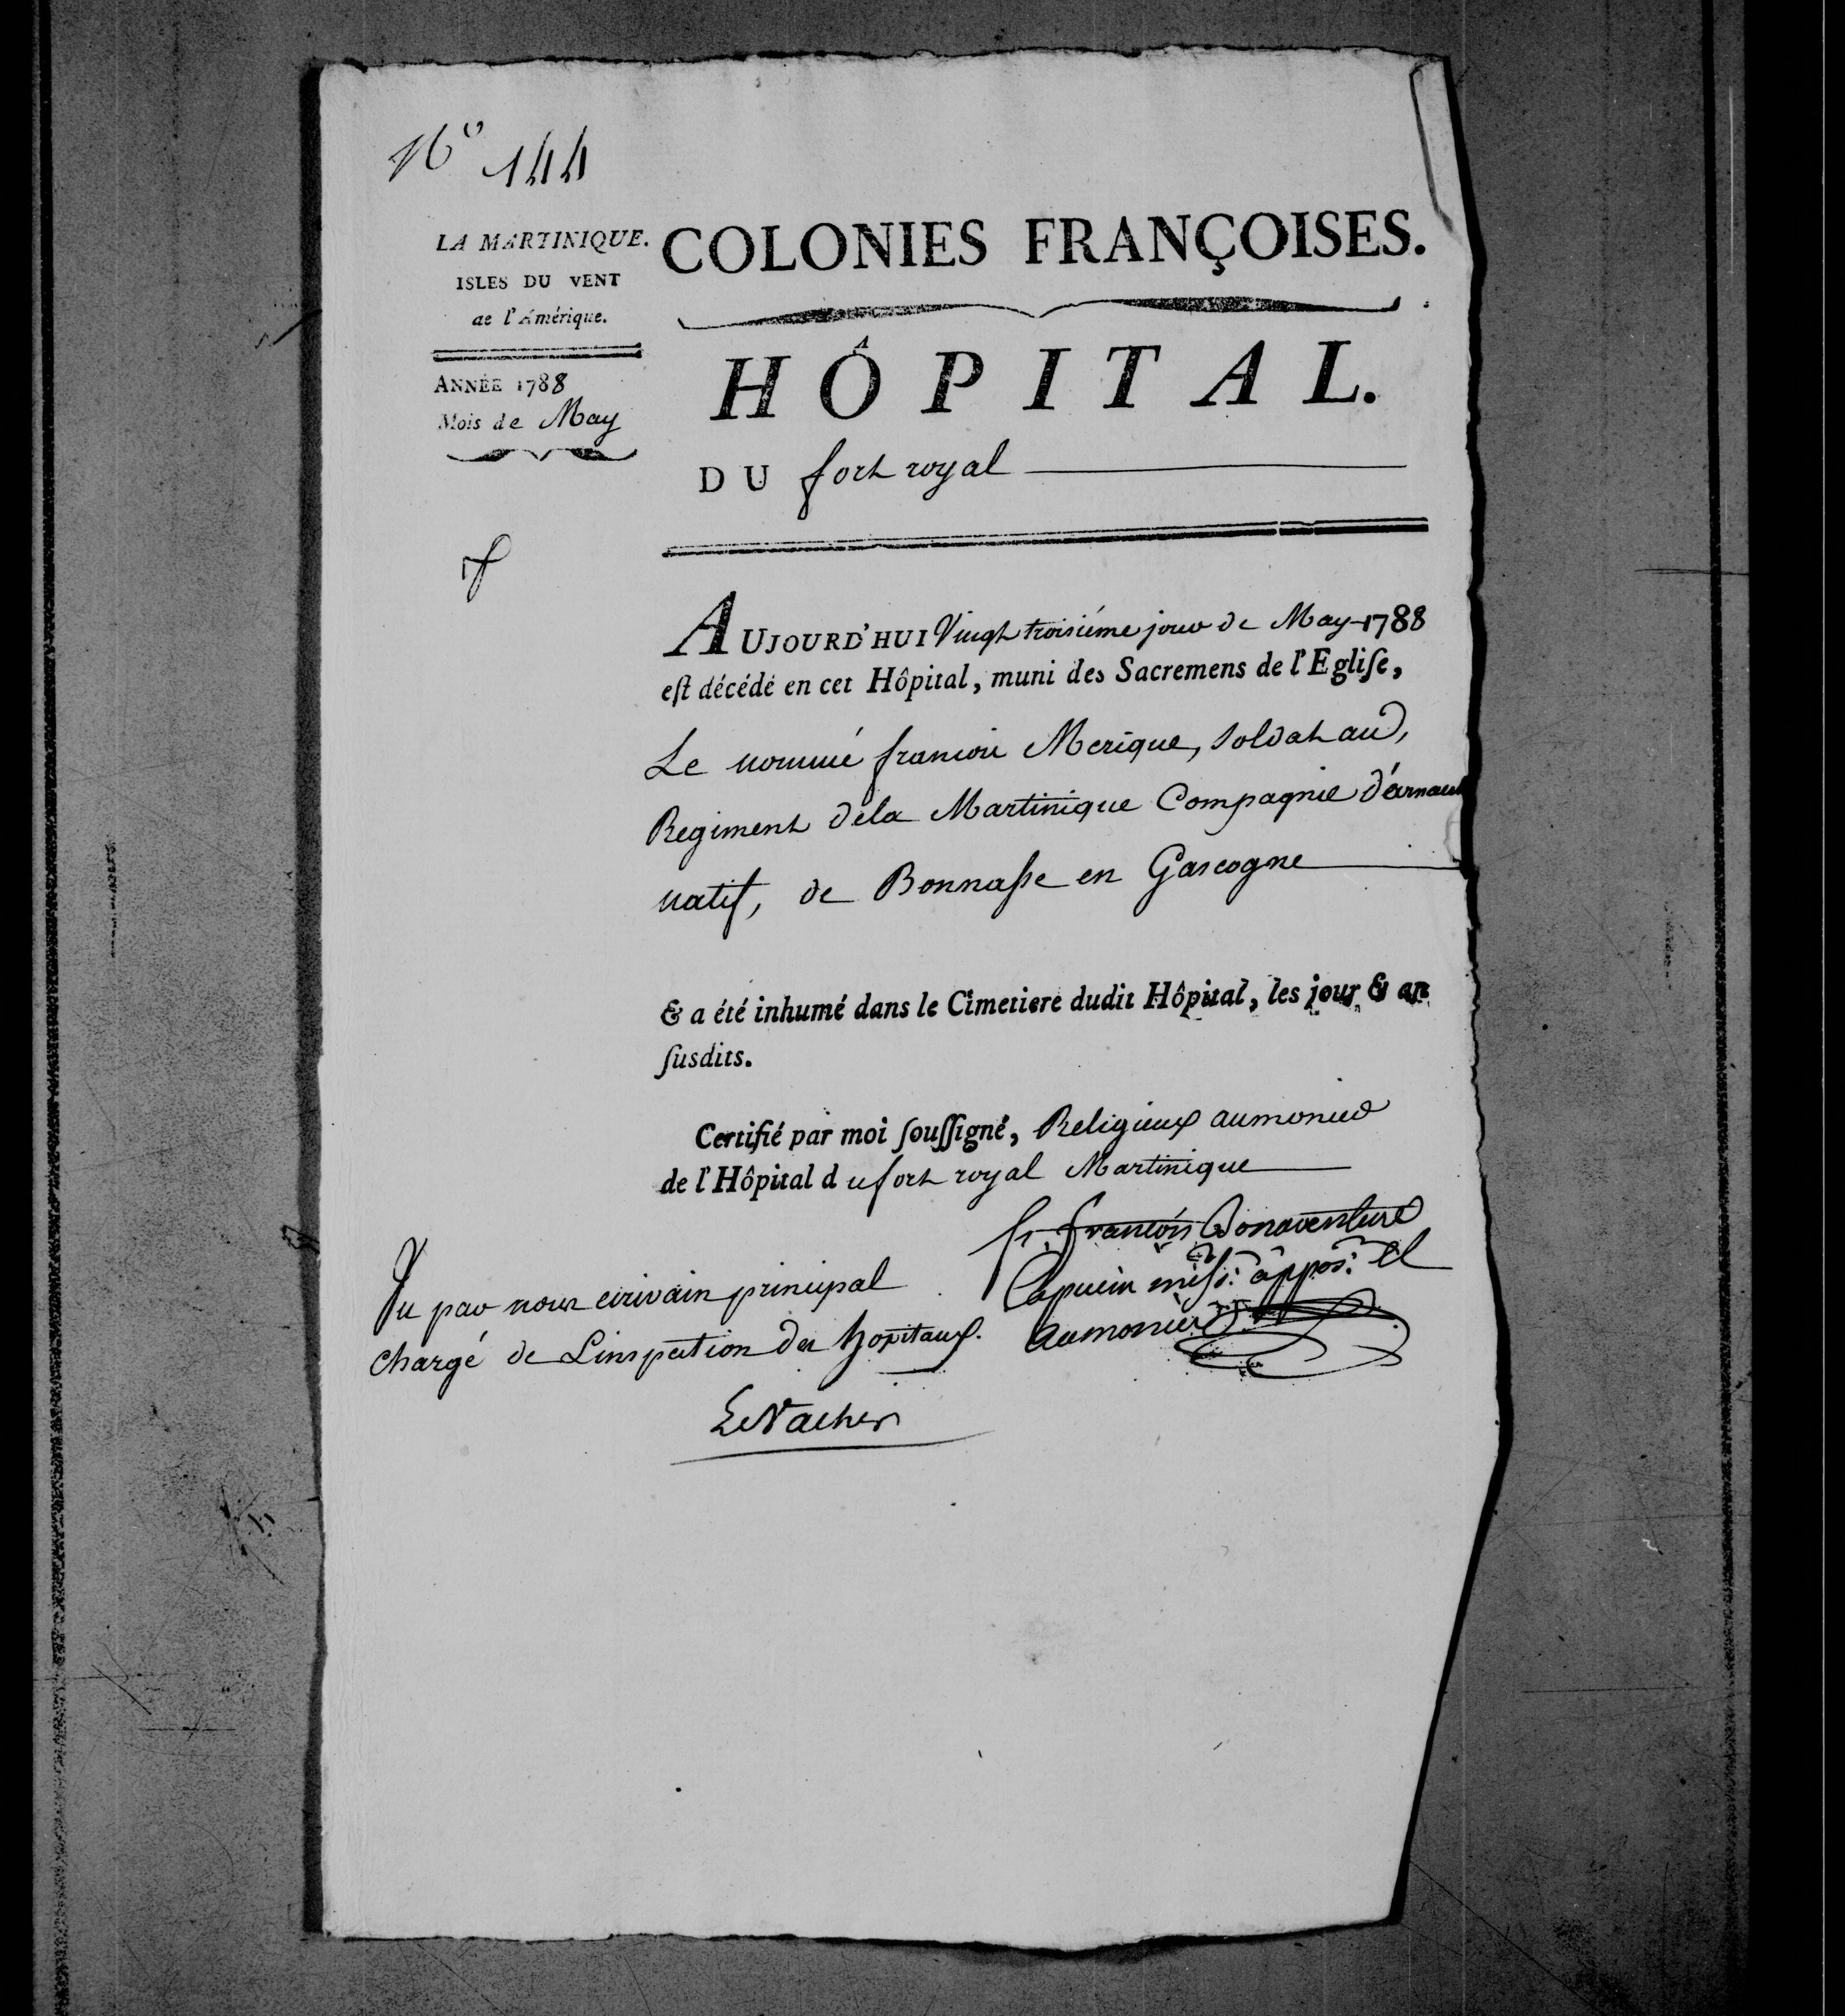 N.º 144
LA MARTINIQUE.
ISLES DU VENT
de l'Amérique.
ANNÉE 1788
Mois de May
COLONIES FRANÇOISES.
HÔPITAL.
DU fort royal
AUJOURD'HUI Vingt troisiéme jour de May 1788
eſt décédé en cet Hôpital, muni des Sacremens de l'Egliſe,
Le nommé francois Merique, soldat au,
Regiment dela Martinique Compagnie d'árnault
natif, de Bonnaſse en Gascogne
& a été inhumé dans le Cimetiere dudit Hôpital, les jour & an
ſusdits.
Certifié par moi ſouſſigné, Religieux aumonier
de l'Hôpital du fort royal Martinique
fr. francóis Bonaventure
Capucin miſs: appos: et
aumonier
Vu par nous ecrivain principal
chargé de Linspection des hopitaux.
LeVacher